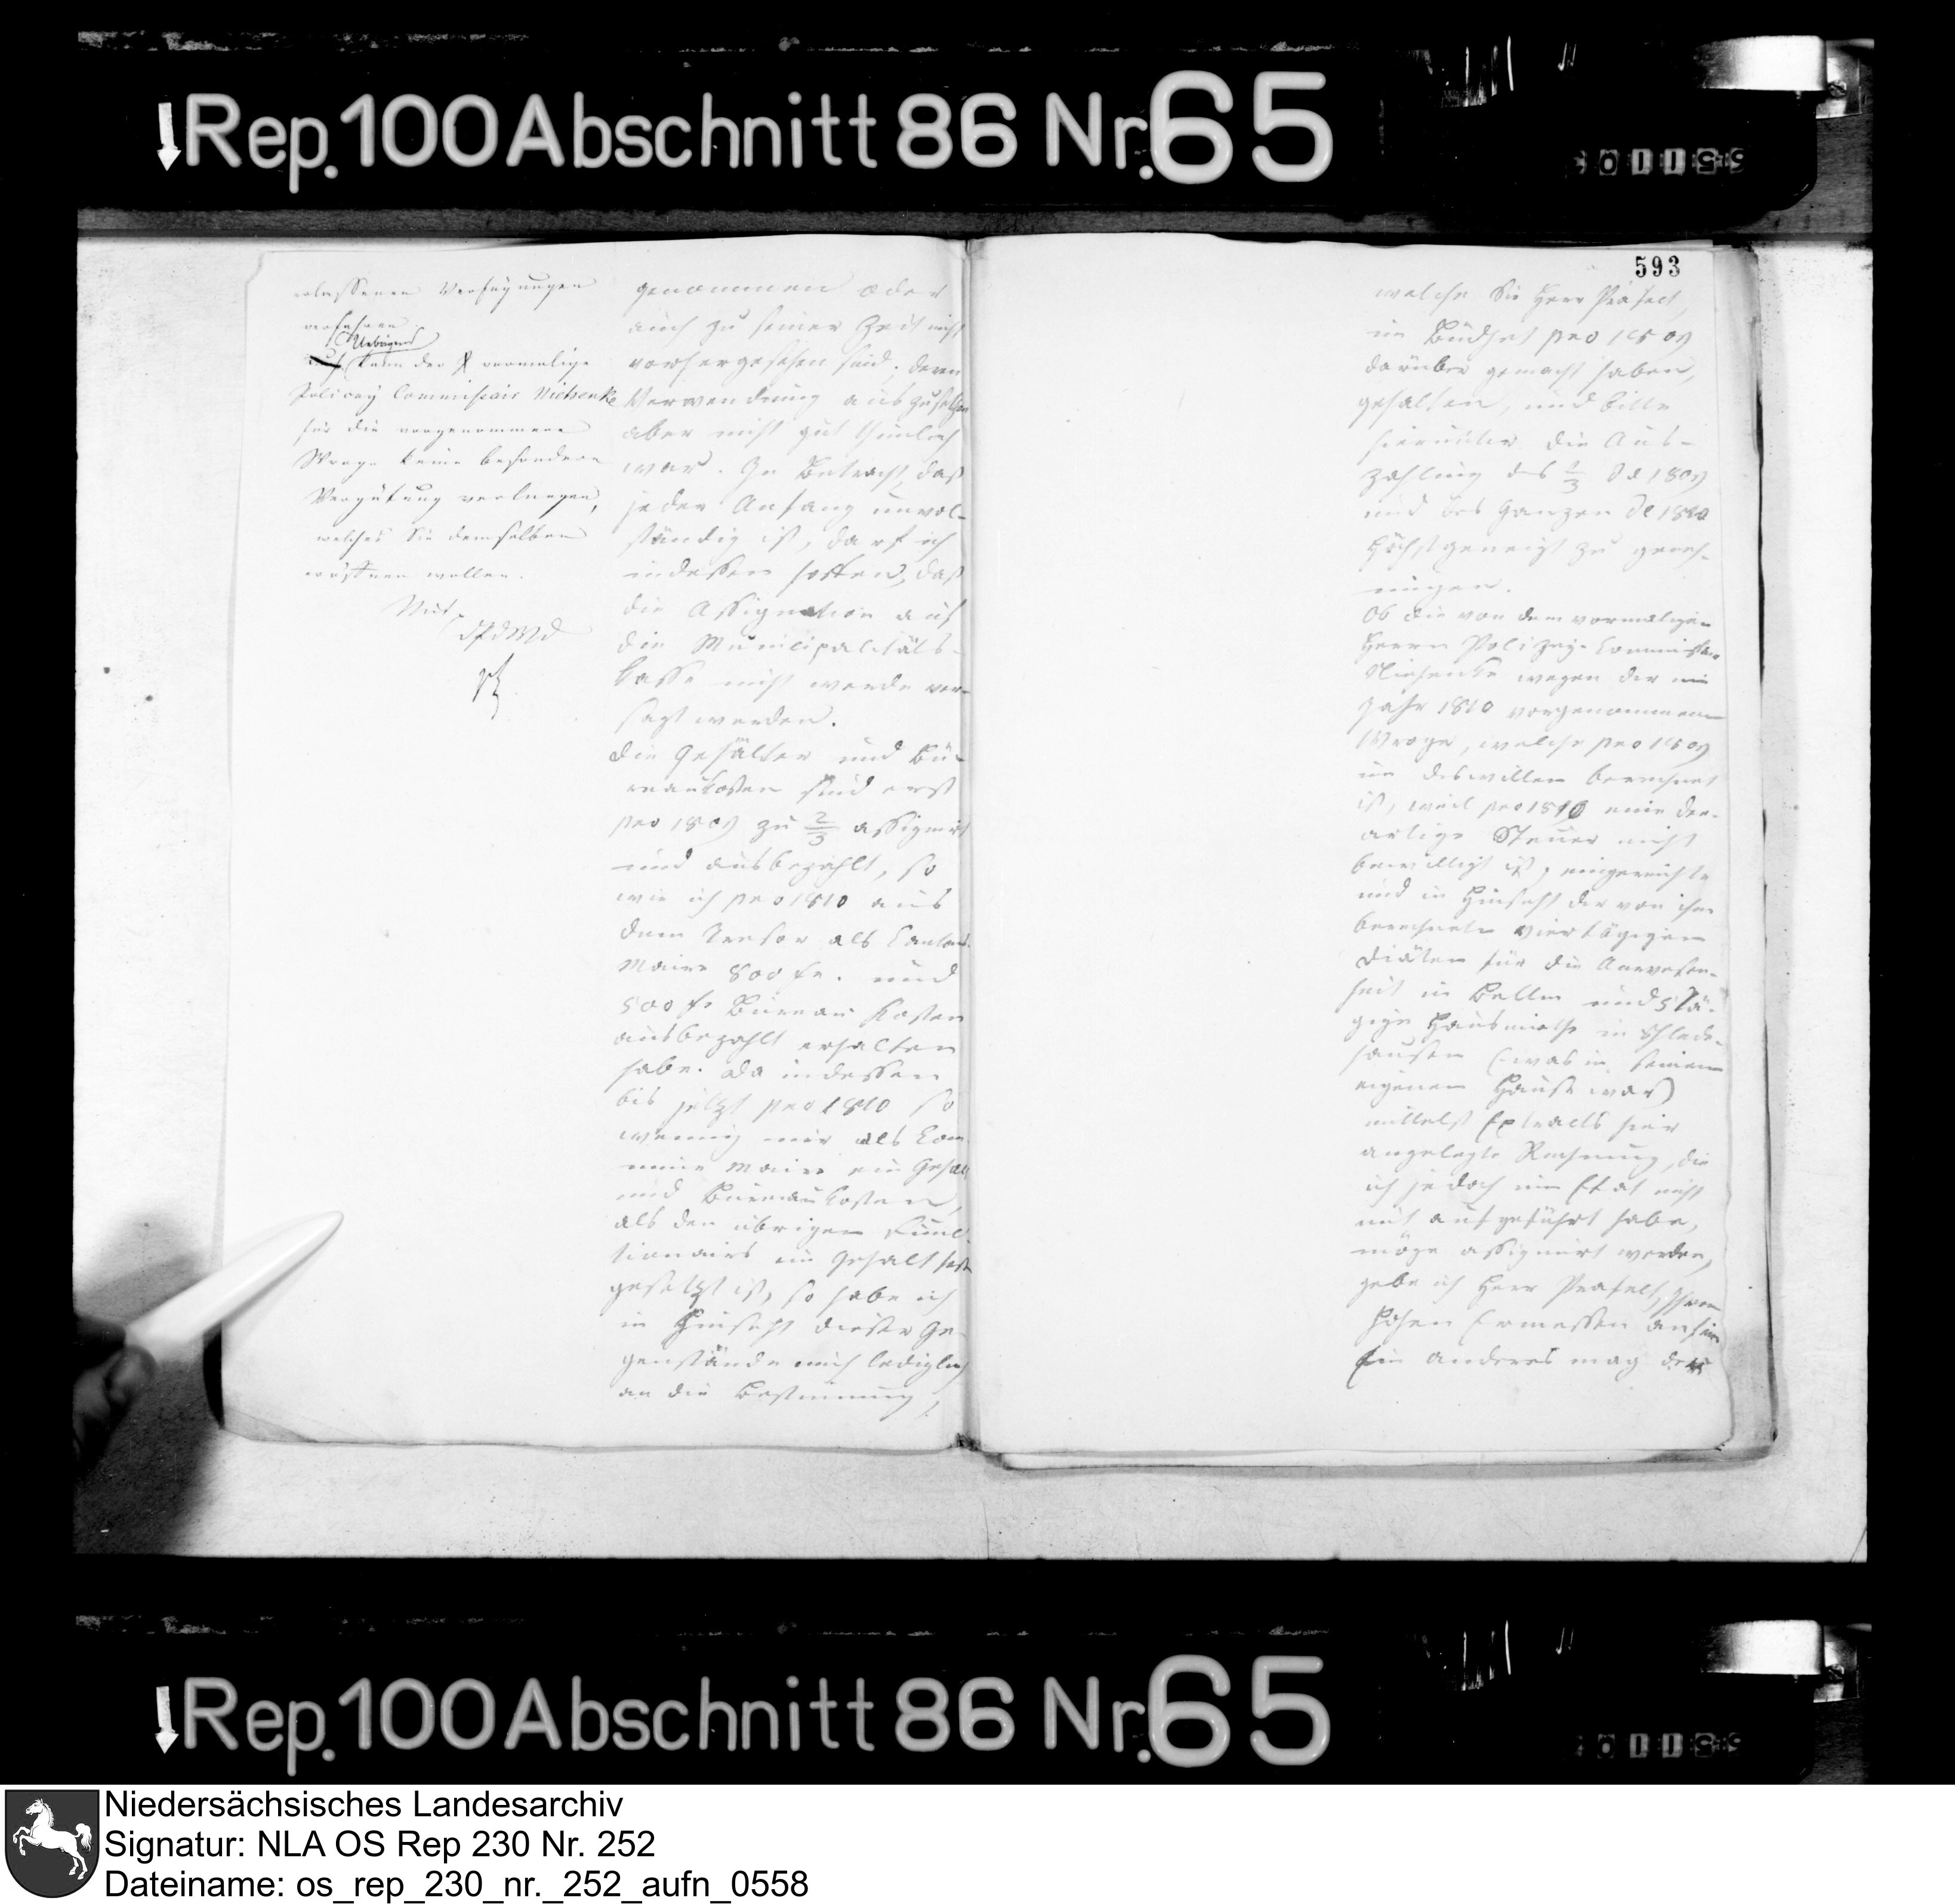 Rep. 100 Abschnitt 86 Nr. 65
593
erlassenen Verfügungen
verfahren.
Uebrigens
kann der vormalige
Policey Commissair Niehenke
für die vorgenommene
Wroge keine besondere
Vergütung verlangen,
welches Sie demselben
eröffnen wollen.
genommen oder
auch zu seiner Zeit nicht
vorhergesehen sind; deren
Verwendung auszusetzen
aber nicht gut thunlich
war. In Betracht, daß
jeder Anfang unvol-
ständig ist, darf ich
indessen hoffen, daß
die Assignation auf
die Municipalitäts-
kasse nicht werde ver-
sagt werden.
Die Gehälter und Bü-
reaukosten sind erst
pro 1809 zu 2/3 assignirt
und ausbezahlt, so
wie ich pro 1810 aus
dem Tresor als Cantons
Maire 800 fr. und
500 fr Büreau Kosten
ausbezahlt erhalten
habe. Da indessen
bis jetzt pro 1810 so
wenig mir als Com
mune Maire ein Gehalt
und Büreaukosten,
als den übrigen Func-
tionairs ein Gehalt fest
gesetzt ist, so habe ich
in Hinsicht dieser Ge-
genstände mich lediglich
an die Bestimmung,
welche Sie Herr Präfect,
im Büdget pro 1809
darüber gemacht haben,
gehalten, und bitte
hierunter die Aus-
zahlung des 1/3 de 1809
und des Ganzen de 1810
höchstgeneigt zu geneh-
migen.
Ob die von dem vormaligen
Herrn Polizey-Commissair
Niehenke wegen der im
Jahr 1810 vorgenommenen
Wroge, welche pro 1809
um deswillen berechnet
ist, weil pro 1810 eine der-
artige Steuer nicht
bewilligt ist, eingereichte
und in Hinsicht der von ihm
berechneten viertägigen
Diäten für die Anwesen-
heit in Bellm und 5 tä-
gige Hausmiethe in Schlede-
hausen (was in seinem
eigenen Hause war)
mittelst Extracts hier
angelegte Rechnung, die
ich jedoch im Etat nicht
mit aufgeführt habe,
möge assignirt werden,
gebe ich Herr Präfect, Ihrem
hohen Ermessen anheim
Ein anderes mag der
Rep. 100 Abschnitt 86 Nr. 65
Niedersächsisches Landesarchiv
Signatur: NLA OS Rep 230 Nr. 252
Dateiname: os_rep_230_nr._252_aufn_0558